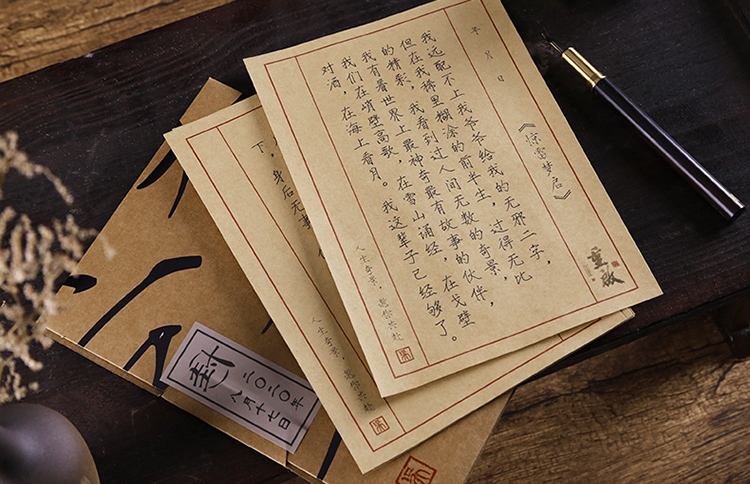 年 月 日
《惊雷梦后》
我远配不上我爷爷给我的无邪二字，
但在我稀里糊涂的前半生，过得无比
的精彩，我看到过人间无数的奇景，
我有着世界上最神奇最有故事的伙伴，
我们在峭壁高歌，在雪山诵经，在戈壁
对酒，在海上看月。我这辈子已经够了。
重启
人生奇景，愿你共赴
下，身后无
人生奇景，愿你共赴
封
二〇二〇年
八月十七日